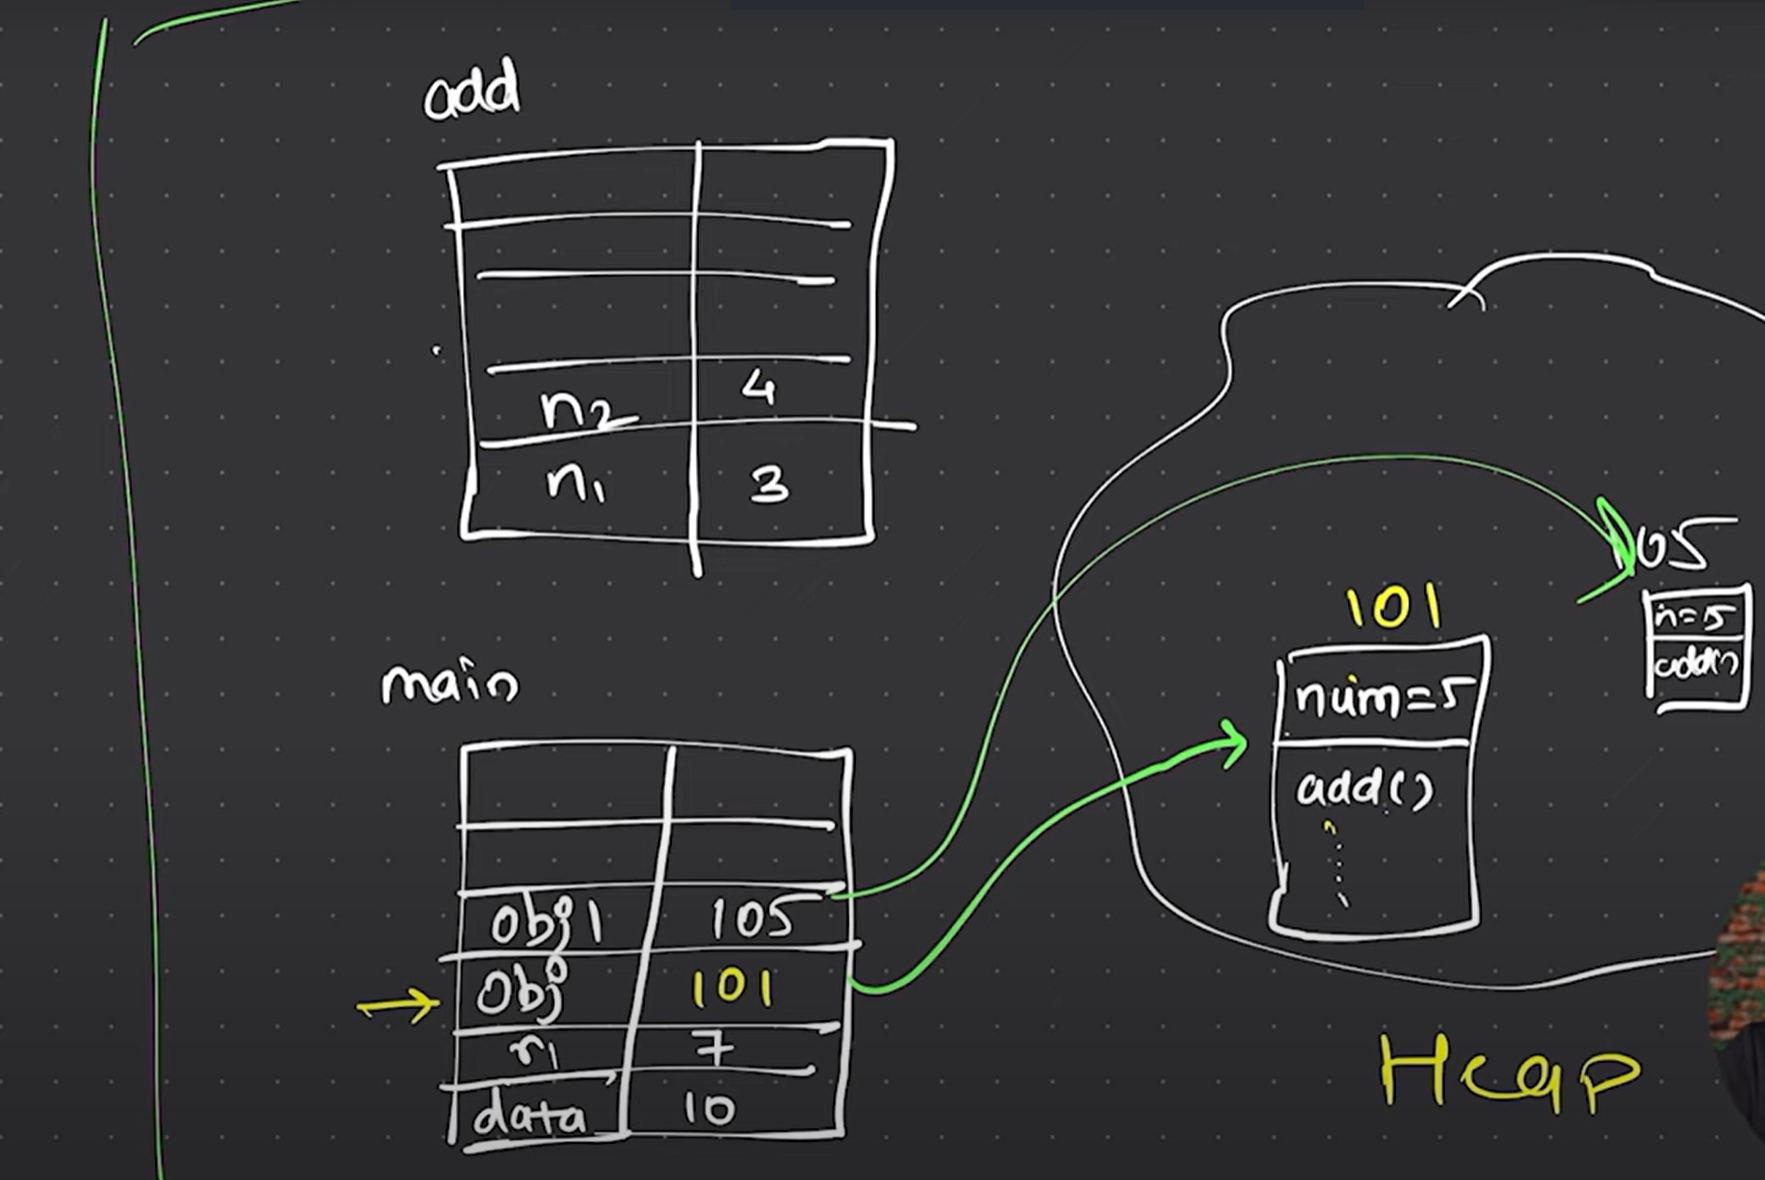 add
n2 4
n1 3
main
obj1 105
obj 101
r1 7
data 10
101
num=5
add()
105
n=5
add()
Heap